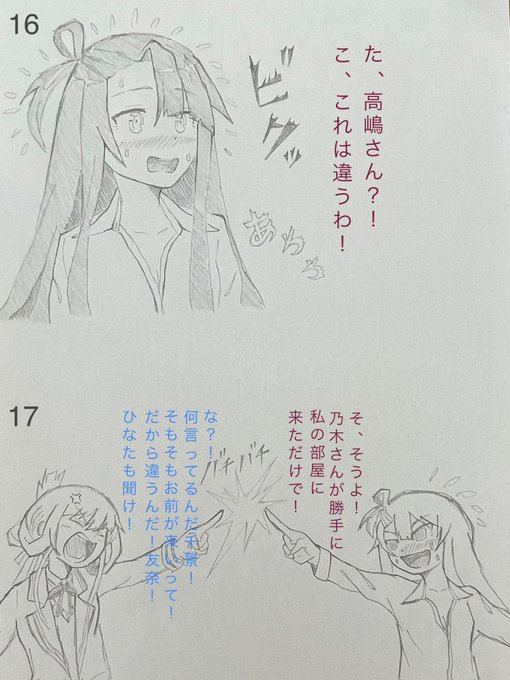 16
た、高嶋さん？！
こ、これは違うわ！
ビクッ
あわわ
17
そ、そうよ！
乃木さんが勝手に
私の部屋に
来ただけで！
バチバチ
な？！
何言ってるんだ千景！
そもそもお前が来いって！
だから違うんだ！友奈！
ひなたも聞け！